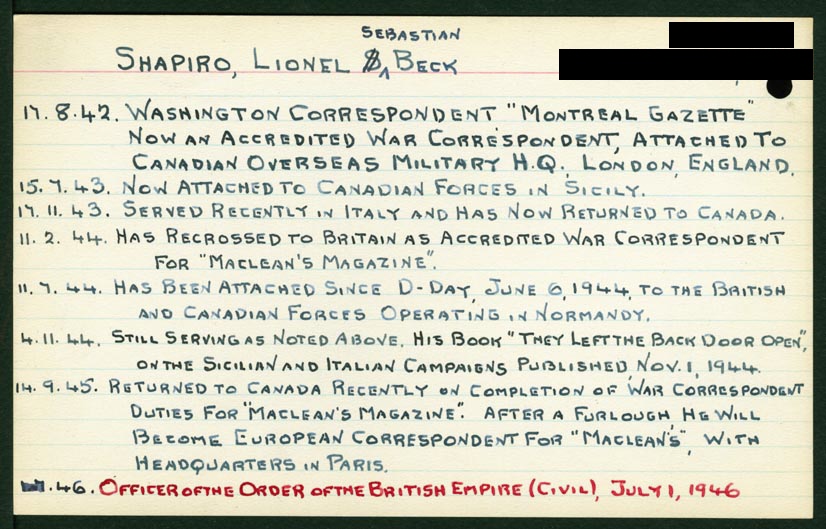 SEBASTIAN
SHAPIRO, LIONEL BECK
17.8.42. WASHINGTON CORRESPONDENT "MONTREAL GAZETTE"
NOW AN ACCREDITED WAR CORRESPONDENT, ATTACHED TO
CANADIAN OVERSEAS MILITARY H.Q., LONDON, ENGLAND.
15.7.43. NOW ATTACHED TO CANADIAN FORCES IN SICILY.
17.11.43. SERVED RECENTLY IN ITALY AND HAS NOW RETURNED TO CANADA.
11.2.44. HAS RECROSSED TO BRITAIN AS ACCREDITED WAR CORRESPONDENT
FOR "MACLEAN'S MAGAZINE".
11.7.44. HAS BEEN ATTACHED SINCE D-DAY, JUNE 6, 1944, TO THE BRITISH
AND CANADIAN FORCES OPERATING IN NORMANDY.
4.11.44. STILL SERVING AS NOTED ABOVE. HIS BOOK "THEY LEFT THE BACK DOOR OPEN",
ON THE SICILIAN AND ITALIAN CAMPAIGNS PUBLISHED, NOV. 1, 1944.
14.9.45. RETURNED TO CANADA RECENTLY ON COMPLETION OF WAR CORRESPONDENT
DUTIES FOR "MACLEAN'S MAGAZINE". AFTER A FURLOUGH HE WILL
BECOME EUROPEAN CORRESPONDENT FOR "MACLEAN'S", WITH
HEADQUARTERS IN PARIS.
.46. OFFICER OF THE ORDER OF THE BRITISH EMPIRE (CIVIL), JULY 1, 1946